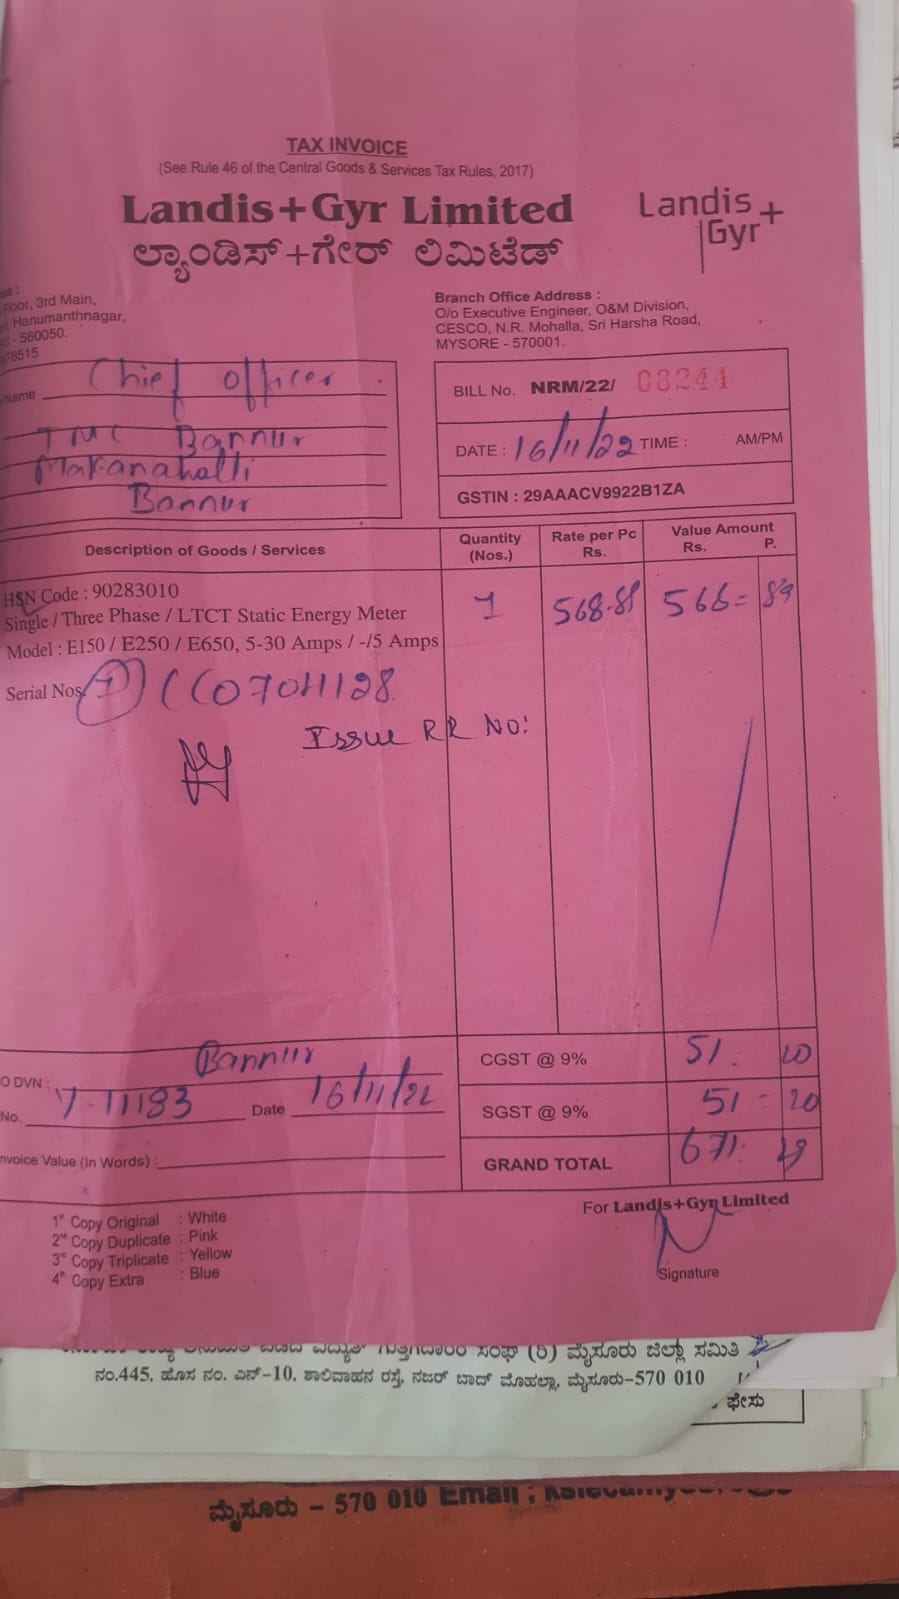 TAX INVOICE
(See Rule 46 of the Central Goods & Services Tax Rules, 2017)
Landis+Gyr Limited
Landis+
Gyr
ಲ್ಯಾಂಡಿಸ್+ಗೇರ್ ಲಿಮಿಟೆಡ್
Floor, 3rd Main,
Hanumanthnagar,
- 560050.
78515
Branch Office Address :
O/o Executive Engineer, O&M Division,
CESCO, N.R. Mohalla, Sri Harsha Road,
MYSORE - 570001.
Name Chief officer
TMC Bannur
Makanahalli
Bannur
BILL No. NRM/22/ 03241
DATE : 16/11/22 TIME : AM/PM
GSTIN : 29AAACV9922B1ZA
Description of Goods / Services Quantity (Nos.) Rate per Pc Rs. Value Amount Rs. P.
HSN Code : 90283010
Single / Three Phase / LTCT Static Energy Meter 1 568-89 568= 89
Model : E150 / E250 / E650, 5-30 Amps / -/5 Amps
Serial Nos. 1)
Issue RR No:
Bannur
CGST @ 9% 51. 20
O DVN :
No. Y-11183 Date 16/11/22
SGST @ 9% 51 - 20
nvoice Value (In Words) :
GRAND TOTAL 671. 29
For Landis+Gyr Limited
Signature
1st Copy Original : White
2nd Copy Duplicate : Pink
3rd Copy Triplicate : Yellow
4th Copy Extra : Blue
ಸಂಘ (ರಿ) ಮೈಸೂರು ಜಿಲ್ಲಾ ಸಮಿತಿ
ನಂ.445, ಹೊಸ ನಂ. ಎನ್-10, ಶಾಲಿವಾಹನ ರಸ್ತೆ, ನಜರ್ ಬಾದ್ ಮೊಹಲ್ಲಾ, ಮೈಸೂರು-570 010
ಫೇಸು
ಮೈಸೂರು - 570 010 Email :